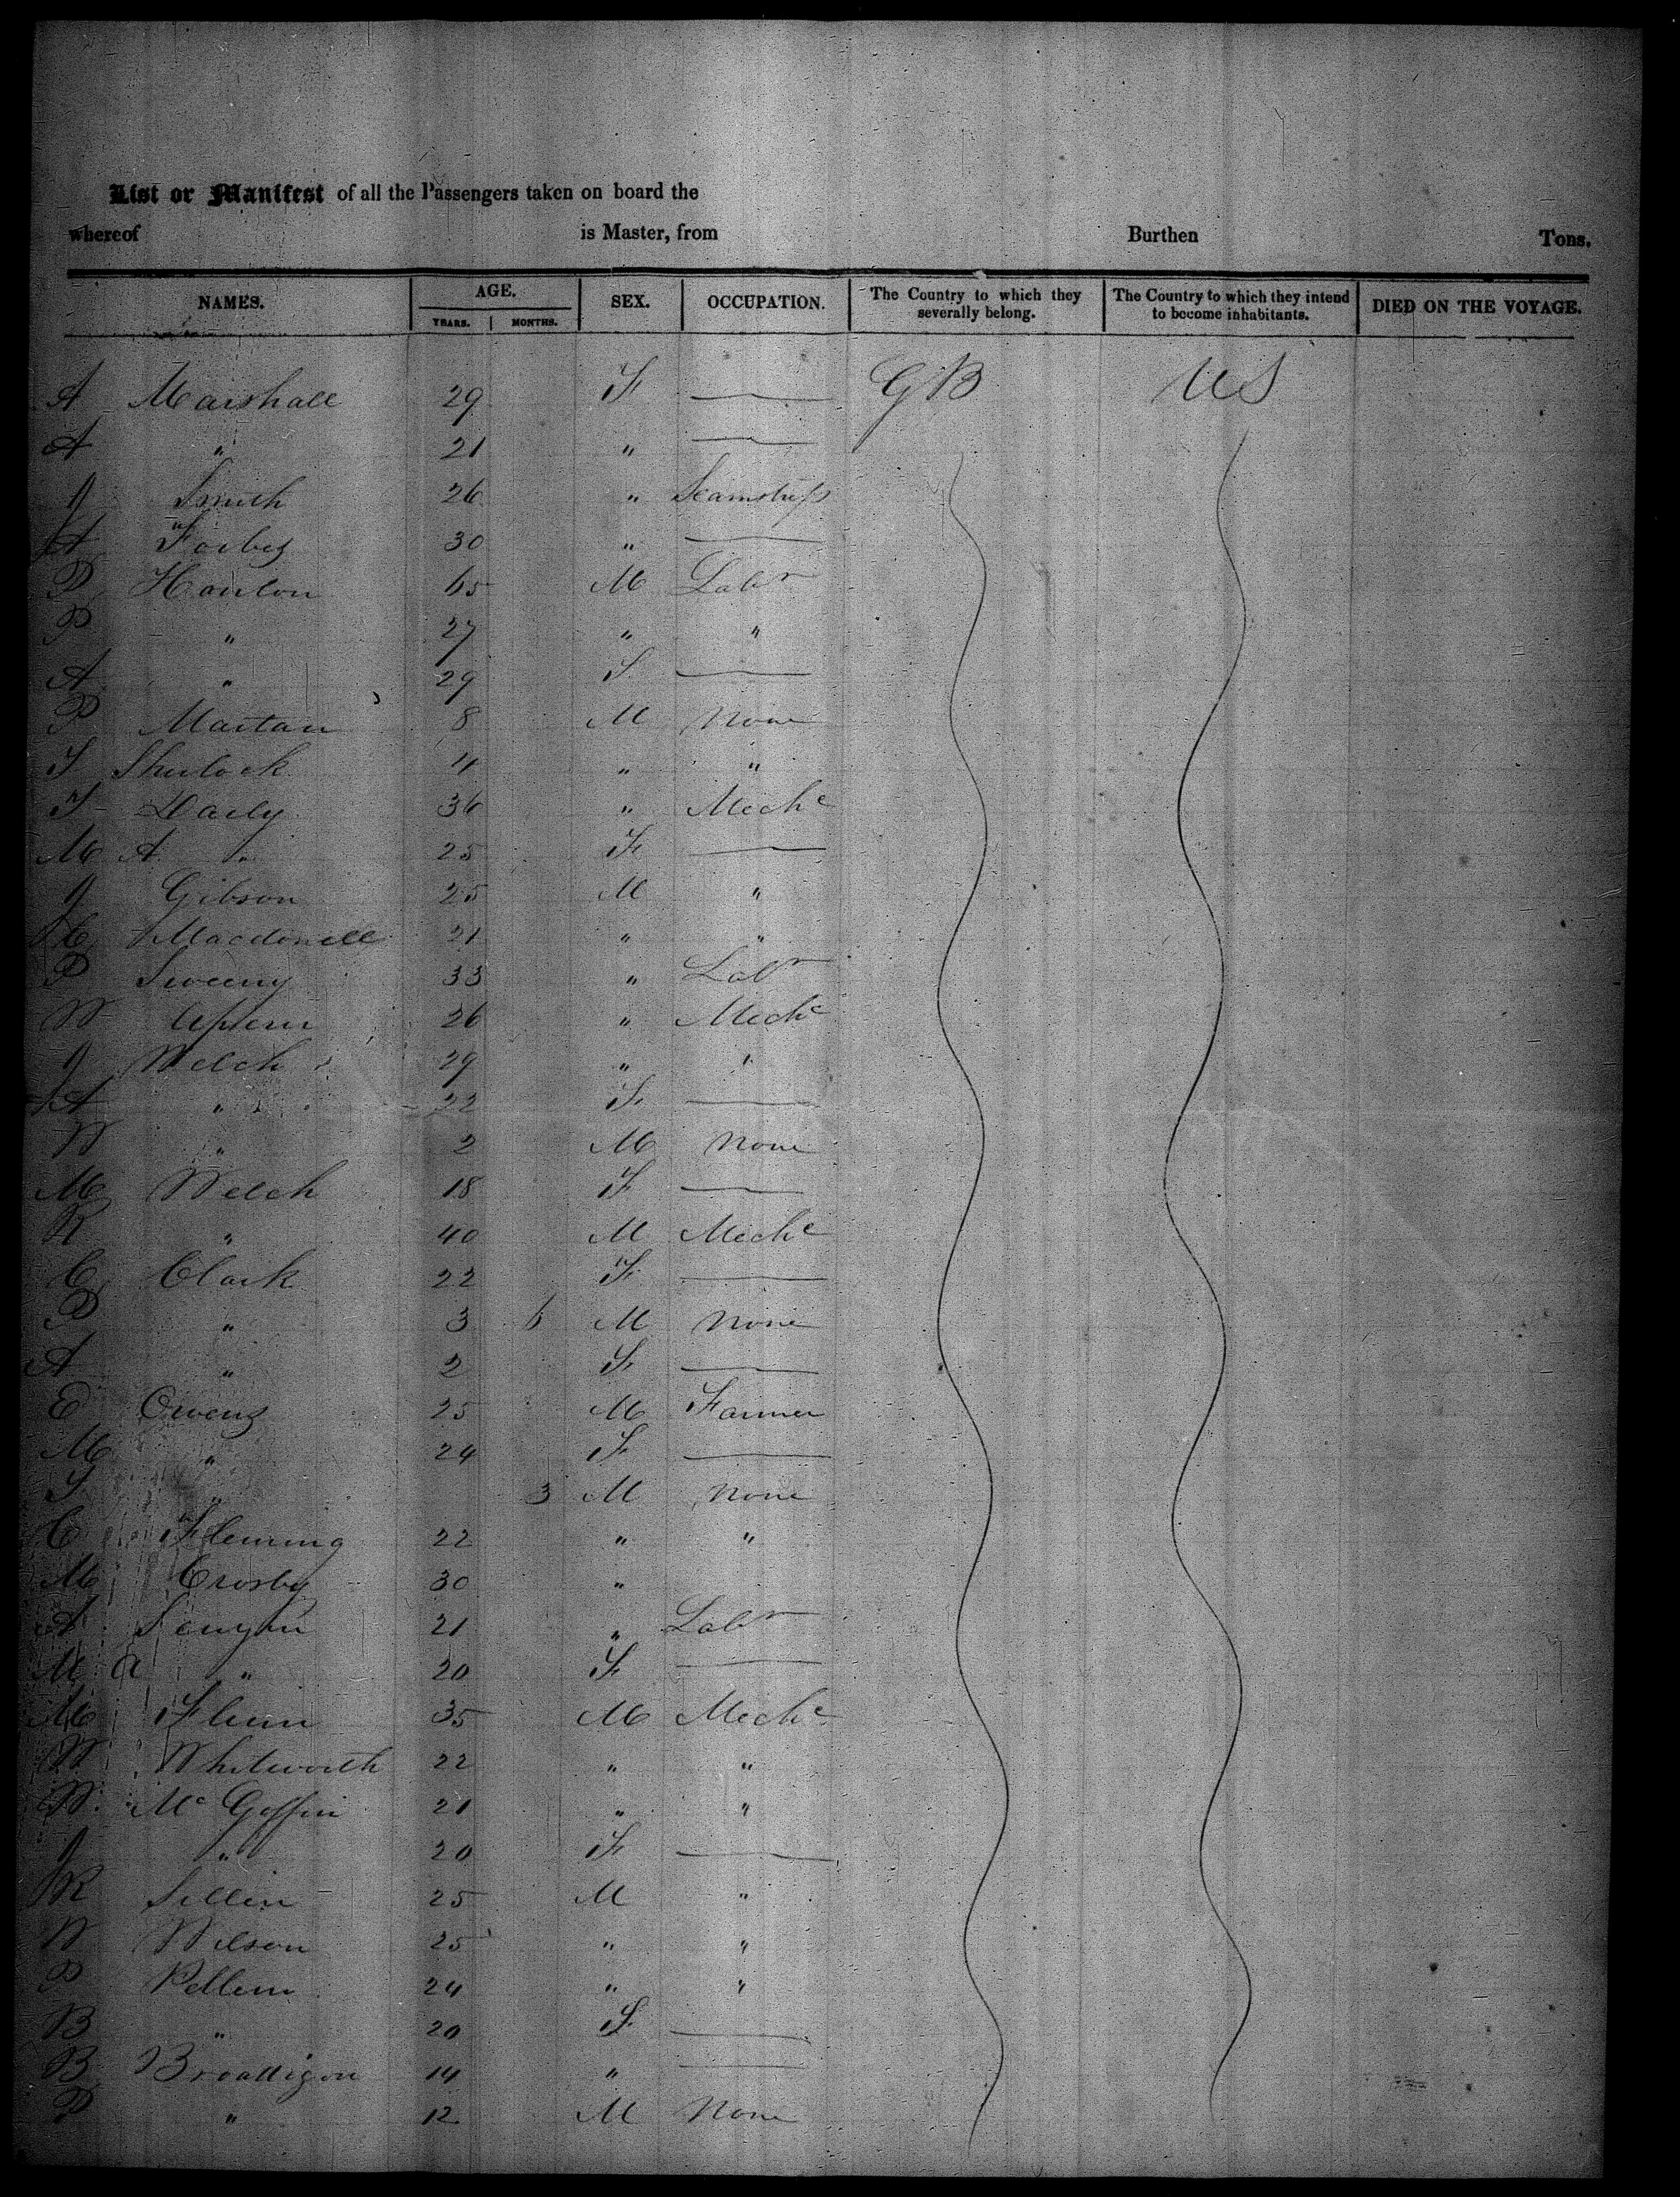 List or Manifest of all the Passengers taken on board the
whereof is Master, from Burthen Tons.
NAMES. AGE. SEX. OCCUPATION. The Country to which they severally belong. The Country to which they intend to become inhabitants. DIED ON THE VOYAGE.
YEARS. MONTHS.
A Marshall 29 F — GB US
A " 21 " —
J Smith 26 " Seamstress
A Forbes 30 " —
P Hanlon 65 M Labr
P " 27 " "
A " 29 F —
P Martan 8 M None
T Sherlock 4 " "
T Daily 36 " Mechc
M A " 25 F —
J Gibson 25 M "
C Macdonell 21 " "
P Sweeny 33 " Labr
W 26 " Mechc
J Welch 29 " "
A " 22 F —
W " 2 M None
M Welch 18 F —
R " 40 M Mechc
C Clark 22 F —
P " 3 6 M None
A " 2 F —
E Owens 25 M Farmer
M " 24 F —
T " 3 M None
C Fleming 22 " "
M Crosby 30 "
A 21 " Labr
M A " 20 F —
M Flinn 35 M Mechc
W Whitworth 22 " "
W McGoffin 21 " "
J " 20 F —
R 25 M "
W Wilson 25 " "
P Pellem 24 " "
B " 20 F —
B 14 " —
P " 12 M None